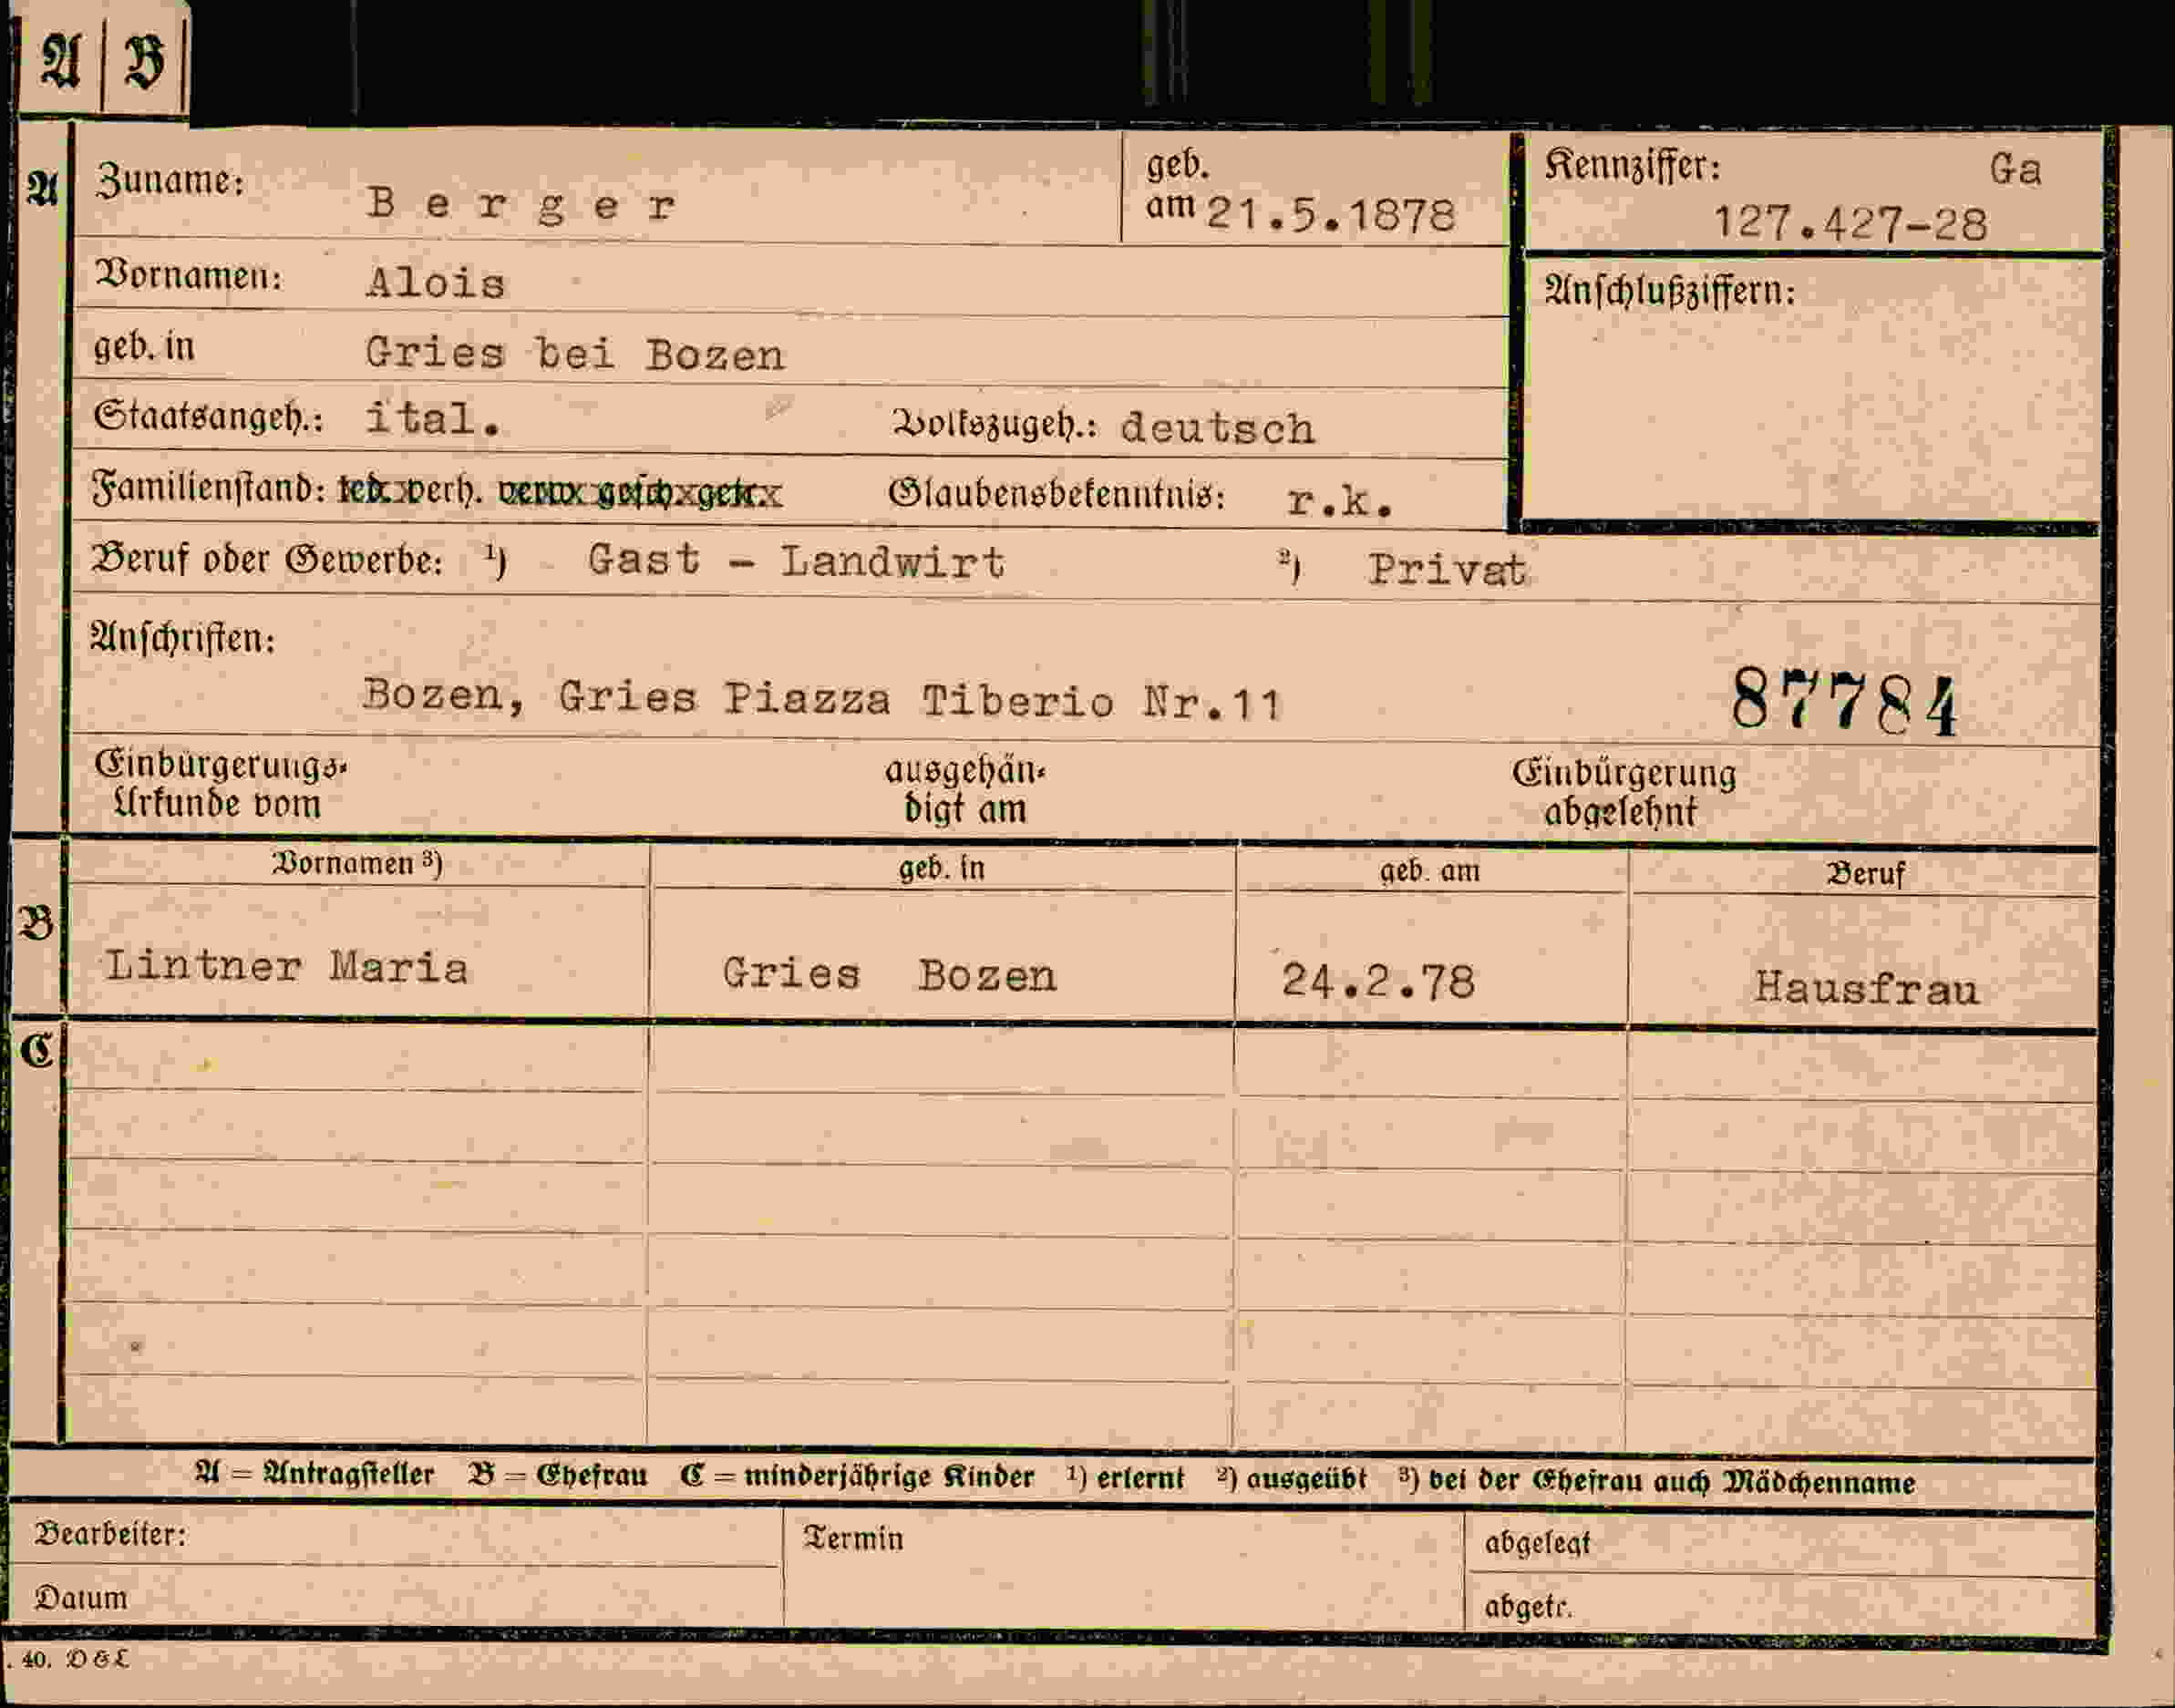 A B
A Zuname: Berger geb. am 21.5.1878 Kennziffer: Ga 127.427-28
Vornamen: Alois Anschlußziffern:
geb. in Gries bei Bozen
Staatsangeh.: ital. Volkszugeh.: deutsch
Familienstand: led. verh. verw. gesch. getr. Glaubensbekenntnis: r.k.
Beruf oder Gewerbe: ¹) Gast - Landwirt ²) Privat
Anschriften:
Bozen, Gries Piazza Tiberio Nr.11 87784
Einbürgerungs- ausgehän- Einbürgerung
Urkunde vom digt am abgelehnt
Vornamen ³) geb. in geb. am Beruf
B Lintner Maria Gries Bozen 24.2.78 Hausfrau
C
A = Antragsteller B = Ehefrau C = minderjährige Kinder ¹) erlernt ²) ausgeübt ³) bei der Ehefrau auch Mädchenname
Bearbeiter: Termin abgelegt
Datum abgetr.
. 40.